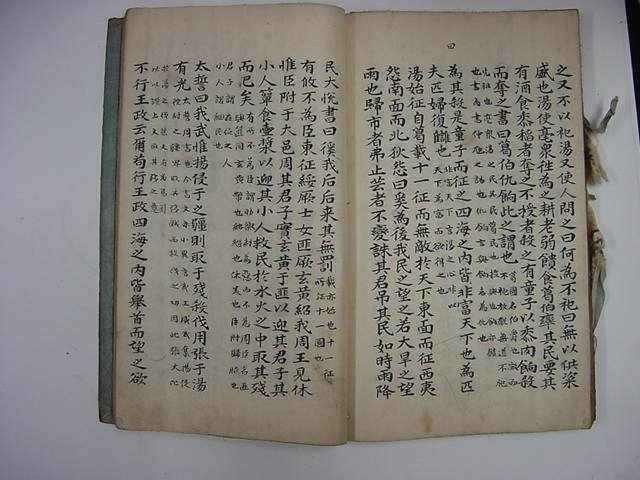 之又不以祀湯又使人問之曰何為不祀曰無以供粢
盛也湯使亳衆往為之耕老弱饋食葛伯率其民要其
有酒食黍稻者奪之不授者殺之有童子以黍肉餉殺
而奪之書曰葛伯仇餉此之謂也
為其殺是童子而征之四海之内皆非富天下也為匹
夫匹婦復讎也 非富天下言湯之心非以天下為富而欲得之也
湯始征自葛載十一征而無敵於天下東面而征西夷
怨南面而北狄怨曰奚為後我民之望之若大旱之望
雨也歸市者弗止芸者不變誅其君吊其民如時雨降
民大悅書曰徯我后后來其無罰 載亦始也十一征所征十一國也
有攸不為臣東征綏厥士女匪厥玄黄紹我周王見休
惟臣附于大邑周其君子實玄黄于匪以迎其君子其
小人簞食壺漿以迎其小人救民於水火之中取其殘
而已矣
君子謂在位之人小人謂細民也
太誓曰我武惟揚侵于之疆則取于殘殺伐用張于湯
有光
不行王政云爾苟行王政四海之内皆舉首而望之欲